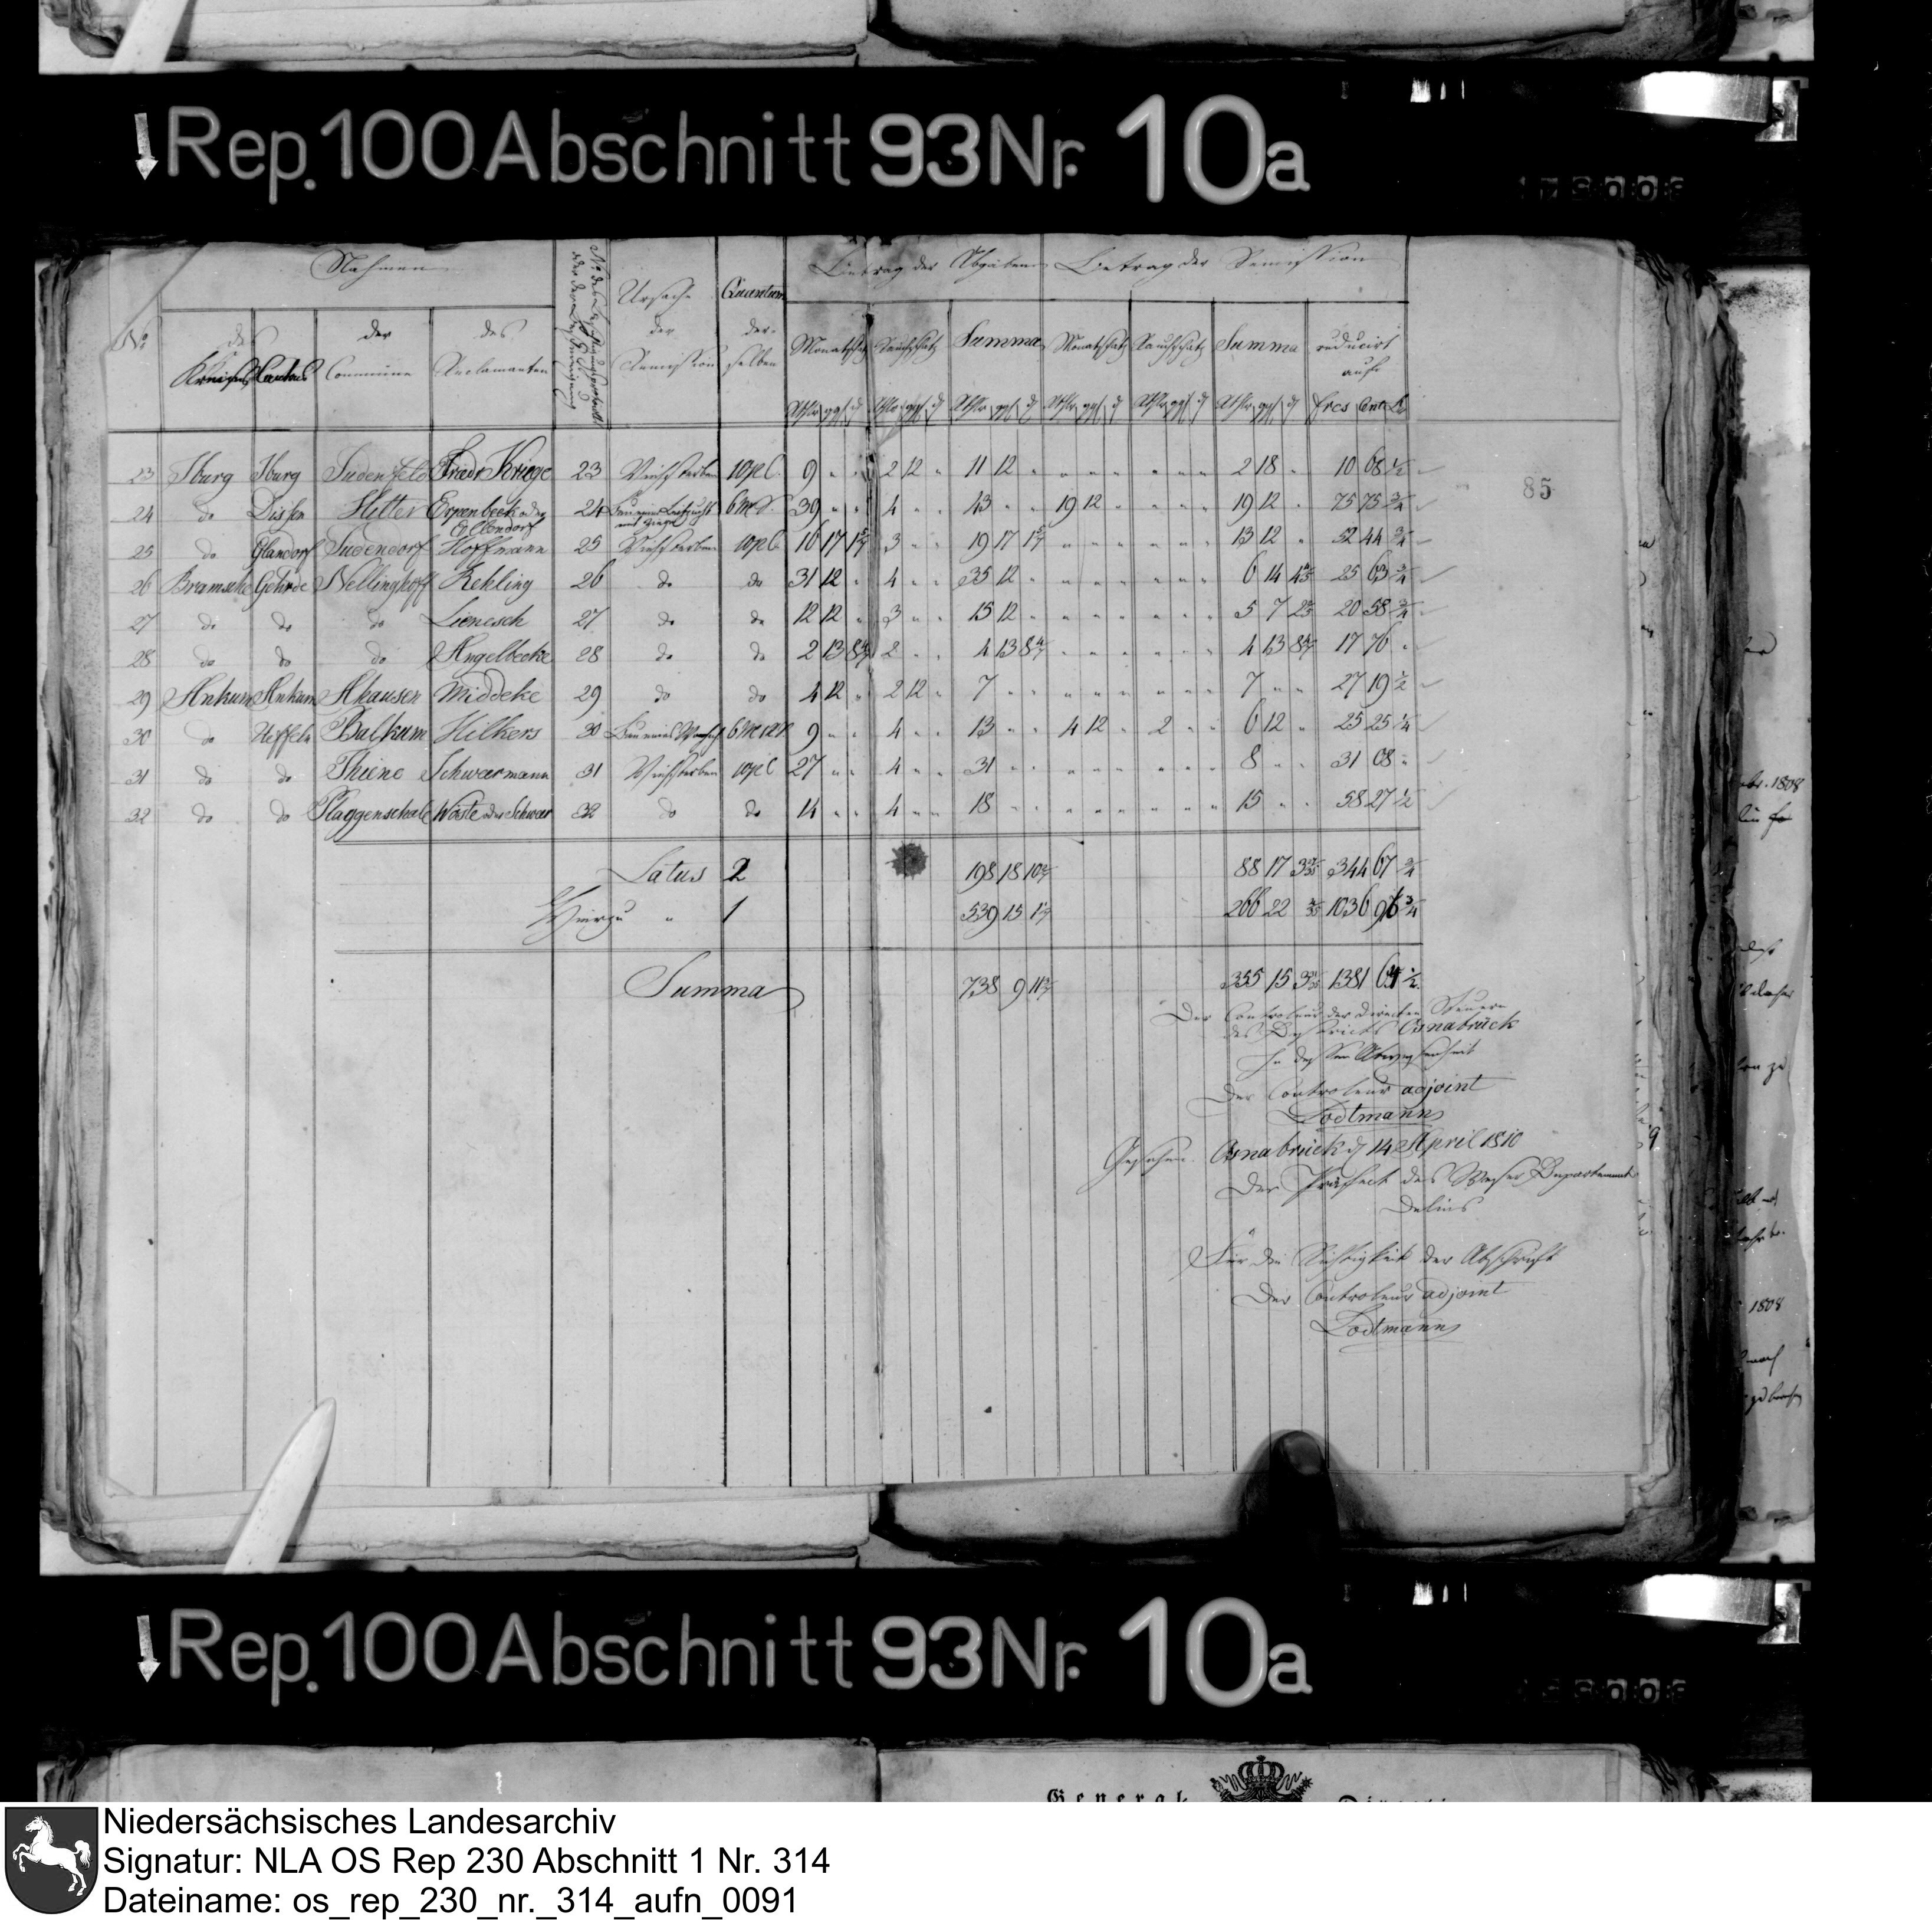 Rep. 100 Abschnitt 93 Nr. 10a
Nahmen
Betrag der Abgaben Betrag der Remission
No des der des Ursache der Remission Quantum derselben
Kreises Cantons Commune Reclamanten
Monatschatz Rauchschatz Summa Monatschatz Rauchschatz Summa reducirt auf
Rthlr ggl d Rthlr ggl d Rthlr ggl d Rthlr ggl d Rthlr ggl d Rthlr ggl d frcs Cent
23 Iburg Iburg Sudenfeld Friedr Kriege 23 Viehsterben 10pC. 9 " " 2 12 " 11 12 " " " " " " " 2 18 " 10 68 1/2
24 do Dissen Hilter Erpenbeck oder Ellendorf 24 6 M 39 " " 4 " " 43 " " 19 12 " " " " 19 12 " 75 75 3/4
25 do Glandorf Sudendorf Hoffmann 25 Viehsterben 10pC 16 17 1 5/7 3 " " 19 17 1 5/7 " " " " " " 13 12 " 52 44 3/4
26 Bramsche Gehrde Nellinghoff Rehling 26 do do 31 12 " 4 " " 35 12 " " " " " " " 6 14 25 63 3/4
27 do do do Lienesch 27 do do 12 12 " 3 " " 15 12 " " " " " " " 5 7 20 58 3/4
28 do do do Angelbecke 28 do do 2 13 8 4/7 2 " " 4 13 8 4/7 " " " " " " 4 13 8 4/7 17 76 "
29 Ankum Ankum Ahausen Middeke 29 do do 4 12 " 2 12 " 7 " " " " " " " " 7 " " 27 19 1/2
30 do Ueffeln Balkum Hilkers 30 9 " " 4 " " 13 " " 4 12 " 2 " " 6 12 " 25 25 1/4
31 do do Thiene Schwarmann 31 Viehsterben 10pC 27 " " 4 " " 31 " " " " " " " " 8 " " 31 08 "
32 do do Plaggenschale Woste oder Schwar 32 do do 14 " " 4 " " 18 " " " " " " " " 15 " " 58 27 1/2
85
Latus 2 198 18 10 2/7 88 17 344 67 3/4
Hierzu " 1 539 15 1 266 22 1036 96 3/4
Summa 738 9 11 355 15 1381 64 1/2
Der Controleur der Directen Steuern
des Districts Osnabrück
In dessen Abwesenheit
Der Controleur adjoint
Lodtmann
Gesehen Osnabrück d 14 April 1810
Der Präfect des Weser Departements
Delius
Für die Richtigkeit der Abschrift
Der Controleur adjoint
Lodtmann
1808
1808
Rep. 100 Abschnitt 93 Nr. 10a
General
Niedersächsisches Landesarchiv
Signatur: NLA OS Rep 230 Abschnitt 1 Nr. 314
Dateiname: os_rep_230_nr._314_aufn_0091